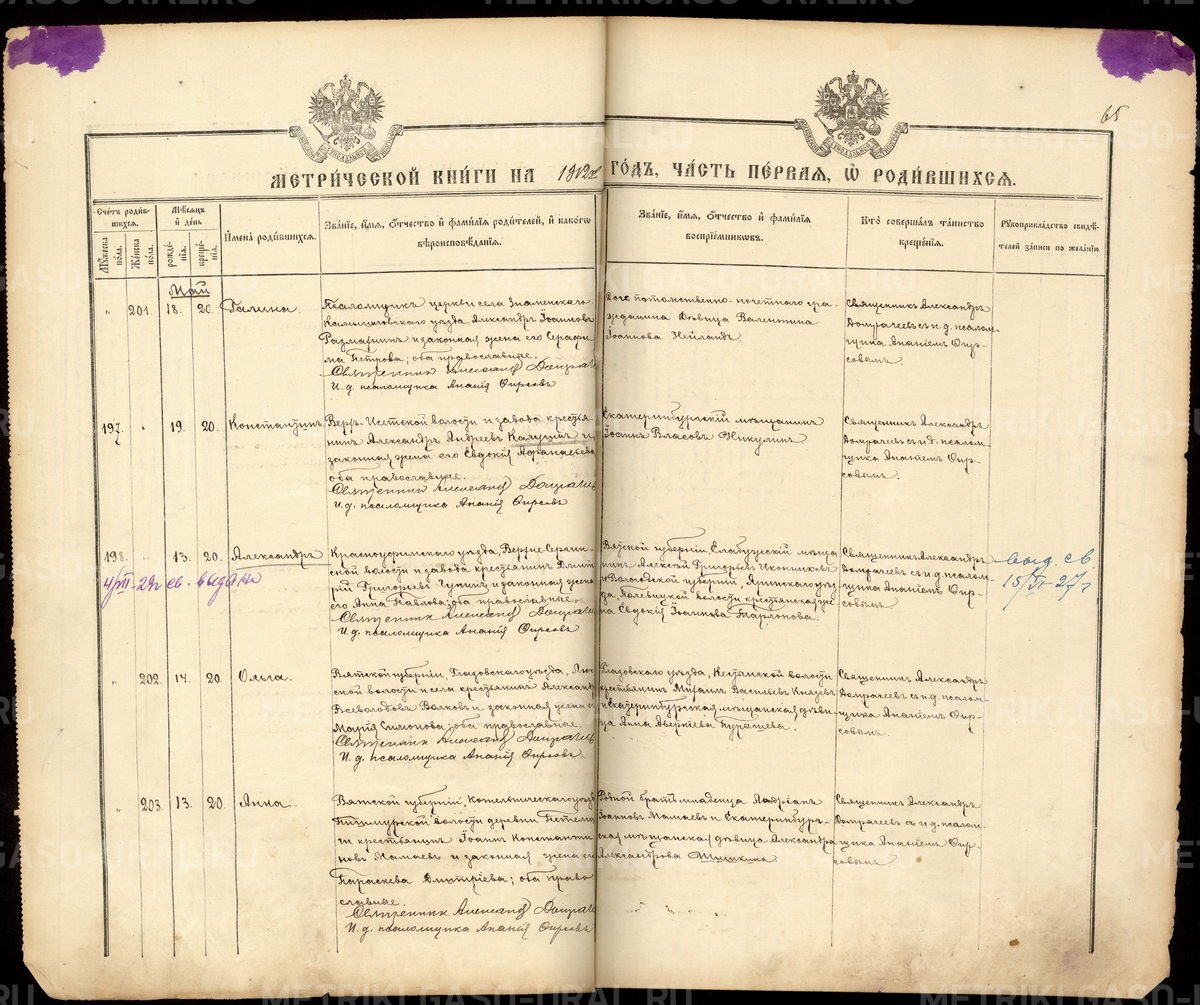 65
МЕТРИ́ЧЕСКОЙ КНИ́ГИ НА 1912 ГО́ДЪ, ЧА́СТЬ ПЕ́РВАЯ, Ѡ РОДИ́ВШИХСЯ.
Счетъ роди́вшихся.
Мужеска по́ла.
Же́нска по́ла.
Мѣ́сяцъ и́ де́нь
рожде́нія.
креще́нія.
И́мена̀ роди́вшихся.
Зва́ніе, и́мя, ѻ́тчество и҆ фами́лія роди́телей, и҆ како́гѡ вѣроисповѣ́данія.
Зва́ніе, и́мя, ѻ́тчество и҆ фами́лія воспріе́мниковъ.
Кто̀ соверша́лъ та́инство креще́нія.
Рꙋкоприкла́дство свидѣ́телей за́писи по жела́нію.
Май
" 201. 18. 20. Галина.
Псаломщикъ церкви села Знаменскаго
Камышловскаго уѣзда Александръ Іоанновъ
и законная жена его Серафи-
ма Петрова; оба православные.
Священникъ Александръ
И. д. псаломщика Ананій Фирсовъ
Дочь потомственно-почетнаго гра-
жданина Дѣвица Валентина
Іоаннова Нейландъ
Священникъ Александръ
Домрачеевъ съ и. д. псалом-
щика Ананіемъ Фир-
совымъ.
197. " 19. 20. Константинъ.
Верхъ-Исетской волости и завода крестья-
нинъ Александръ Андреевъ Калугинъ и
законная жена его Евдокія Афанасьева
оба православные.
Священникъ Александръ
И. д. псаломщика Ананій Фирсовъ
Екатеринбургскій мѣщанинъ
Іоаннъ Власовъ Никулинъ
Священникъ Александръ
Домрачеевъ съ и. д. псалом-
щика Ананіемъ Фир-
совымъ.
198. " 13. 20. Александръ
4/VII-29г св. выдано
Красноуфимскаго уѣзда, Верхне-Сергин-
ской волости и завода крестьянинъ Дмит-
рій Григорьевъ и законная жена
его Анна Павлова; оба православные.
Священникъ Александръ
И. д. псаломщика Ананій Фирсовъ
Вятской губерніи, Елабужскій мѣща-
нинъ Алексѣй Григорьевъ Иконниковъ
и Вологодской губерніи, Яренскаго уѣз-
да, волости крестьянская же-
на Евдокія Іоаннова
Священникъ Александръ
Домрачеевъ съ и. д. псалом-
щика Ананіемъ Фир-
совымъ.
выд. св.
15/VI-27г
" 202. 14. 20. Ольга.
Вятской губерніи, Глазовскаго уѣзда,
ской волости и села крестьянинъ Александръ
Всеволодовъ Волковъ и законная жена его
Марія Симонова; оба православные.
Священникъ Александръ
И. д. псаломщика Ананій Фирсовъ
Глазовскаго уѣзда, волости
крестьянинъ Михаилъ Васильевъ Князевъ
и Екатеринбургская мѣщанская дѣви-
ца Анна
Священникъ Александръ
Домрачеевъ съ и. д. псалом-
щика Ананіемъ Фир-
совымъ.
" 203. 13. 20. Анна.
Вятской губерніи, Котельническаго уѣзда
волости деревни
крестьянинъ Іоаннъ Константи-
новъ Мамаевъ и законная жена его
Параскева Дмитріева; оба право-
славные.
Священникъ Александръ
И. д. псаломщика Ананій Фирсовъ
Родной братъ младенца Адріанъ
Іоанновъ Мамаевъ и Екатеринбург-
ская мѣщанская дѣвица Александра
Александрова Шишкина
Священникъ Александръ
Домрачеевъ съ и. д. псалом-
щика Ананіемъ Фир-
совымъ
METRIKI.GASO-URAL.RU